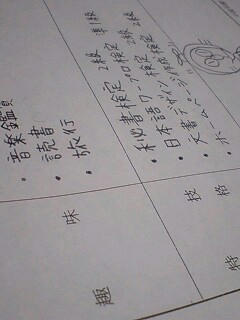 趣味
・音楽鑑賞
・読書
・旅行
特技
格
・秘書検定 2級
・日本語ワープロ検定 準1級
・文書デザイン検定 2級